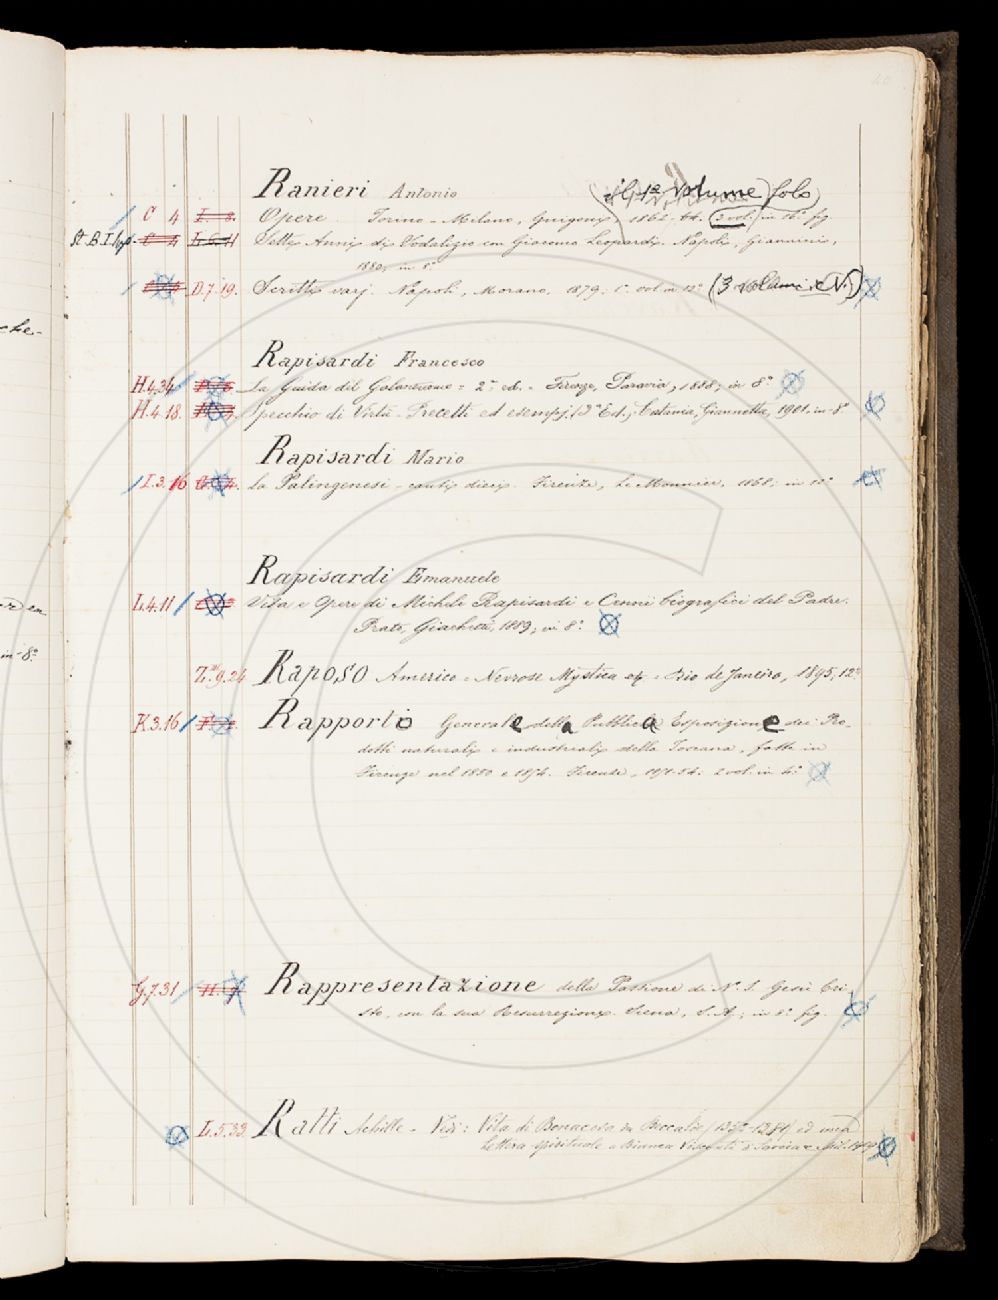 40
Ranieri Antonio (il 1º volume) solo
C 4 Opere. Torino - Milano, Guigoni, 1862-64. (3 vol.) in 16º fig.
C 4 L.6.11 Sette Anni di Sodalizio con Giacomo Leopardi. Napoli, Giannini,
1880, in 8º
D.7.19. Scritti varj. Napoli, Morano, 1879, vol. in 12º (3 volumi e N.)
Rapisardi Francesco
H.4.34 La Guida del Galantuomo = 2ª ed. - Firenze, Paravia, 1888; in 8º
H.4.18. Specchio di Virtù - Precetti ed esempj (3ª Ed.), Catania, Giannotta, 1901. in-8º
Rapisardi Mario
I.3.16 La Palingenesi - canti dieci. Firenze, Le Monnier, 1868; in 12º
Rapisardi Emanuele
L.4.11 Vita e Opere di Michele Rapisardi e Cenni biografici del Padre.
Prato, Giachetti, 1889, in 8º
Z.9.24 Raposo Americo - Nevrose Mystica - Rio de Janeiro, 1895, 12º
K.3.16 Rapporto Generale della Pubblica Esposizione dei Pro-
dotti naturali e industriali della Toscana, fatta in
Firenze nel 1850 e 1854. Firenze, 1851-54. 2 vol. in 4º
G.7.31 Rappresentazione della Passione di N. S. Gesù Cri
sto, con la sua Resurrezione. Siena, S. A.; in 8º fig.
L.5.33 Ratti Achille - Vedi: Vita di Bonacosa da Beccalòe (1352-1381) ed una
Lettera spirituale a Bianca Visconti di Savoia - Mil.
che-
in-8º